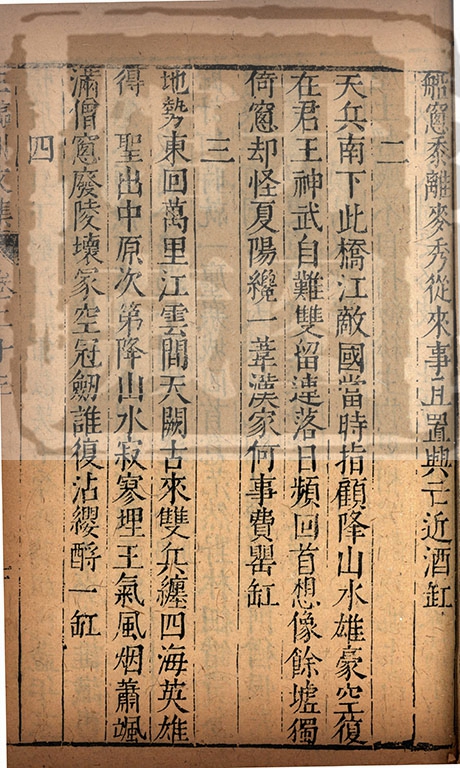 船窻黍離麥秀從來事且置興亡近酒缸
二
天兵南下此橋江敵國當時指顧降山水雄豪空復
在君王神武自難雙留連落日頻回首想像餘墟獨
倚窻却怪夏陽纔一葦漢家何事費罌缸
三
地勢東回萬里江雲間天闕古來雙兵纏四海英雄
得 聖出中原次第降山水寂寥埋王氣風烟蕭颯
滿僧窻廢陵壞冢空冠劒誰復沾纓酹一缸
四